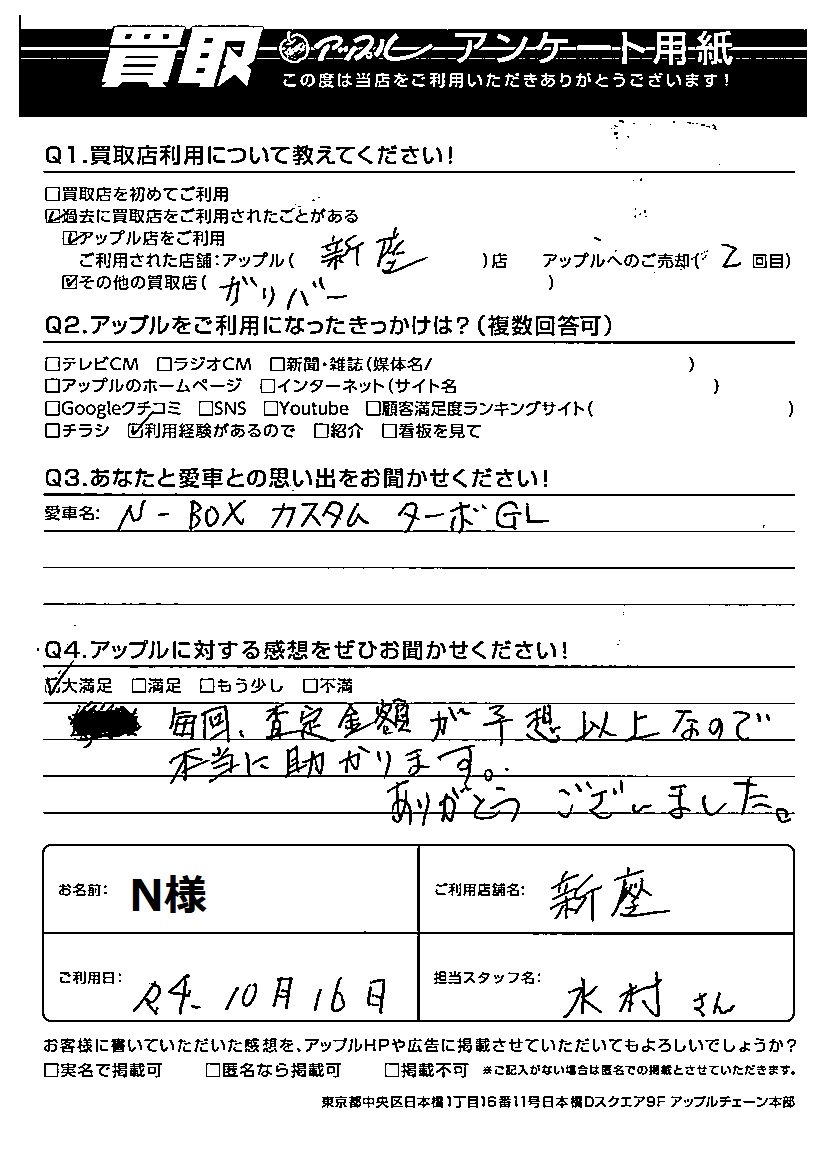 買取 アップル アンケート用紙
この度は当店をご利用いただきありがとうございます！
Q1.買取店利用について教えてください！
□買取店を初めてご利用
☑過去に買取店をご利用されたことがある
☑アップル店をご利用
ご利用された店舗:アップル( 新座 )店 アップルへのご売却( 2 回目)
☑その他の買取店( ガリバー )
Q2.アップルをご利用になったきっかけは?(複数回答可)
□テレビCM □ラジオCM □新聞・雑誌(媒体名/ )
□アップルのホームページ □インターネット(サイト名 )
□Googleクチコミ □SNS □Youtube □顧客満足度ランキングサイト( )
□チラシ ☑利用経験があるので □紹介 □看板を見て
Q3.あなたと愛車との思い出をお聞かせください！
愛車名: N-BOX カスタム ターボGL
Q4.アップルに対する感想をぜひお聞かせください！
☑大満足 □満足 □もう少し □不満
毎回、査定金額が予想以上なので
本当に助かります。
ありがとうございました。
お名前: N様 ご利用店舗名: 新座
ご利用日: R4. 10月16日 担当スタッフ名: 水村さん
お客様に書いていただいた感想を、アップルHPや広告に掲載させていただいてもよろしいでしょうか?
□実名で掲載可 □匿名なら掲載可 □掲載不可 ※ご記入がない場合は匿名での掲載とさせていただきます。
東京都中央区日本橋1丁目16番11号日本橋Dスクエア9F アップルチェーン本部